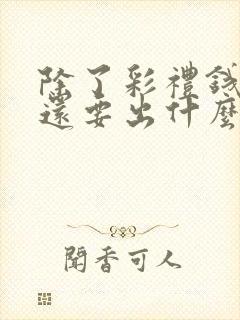 除了彩禮錢
還要出什麼
聞香可人